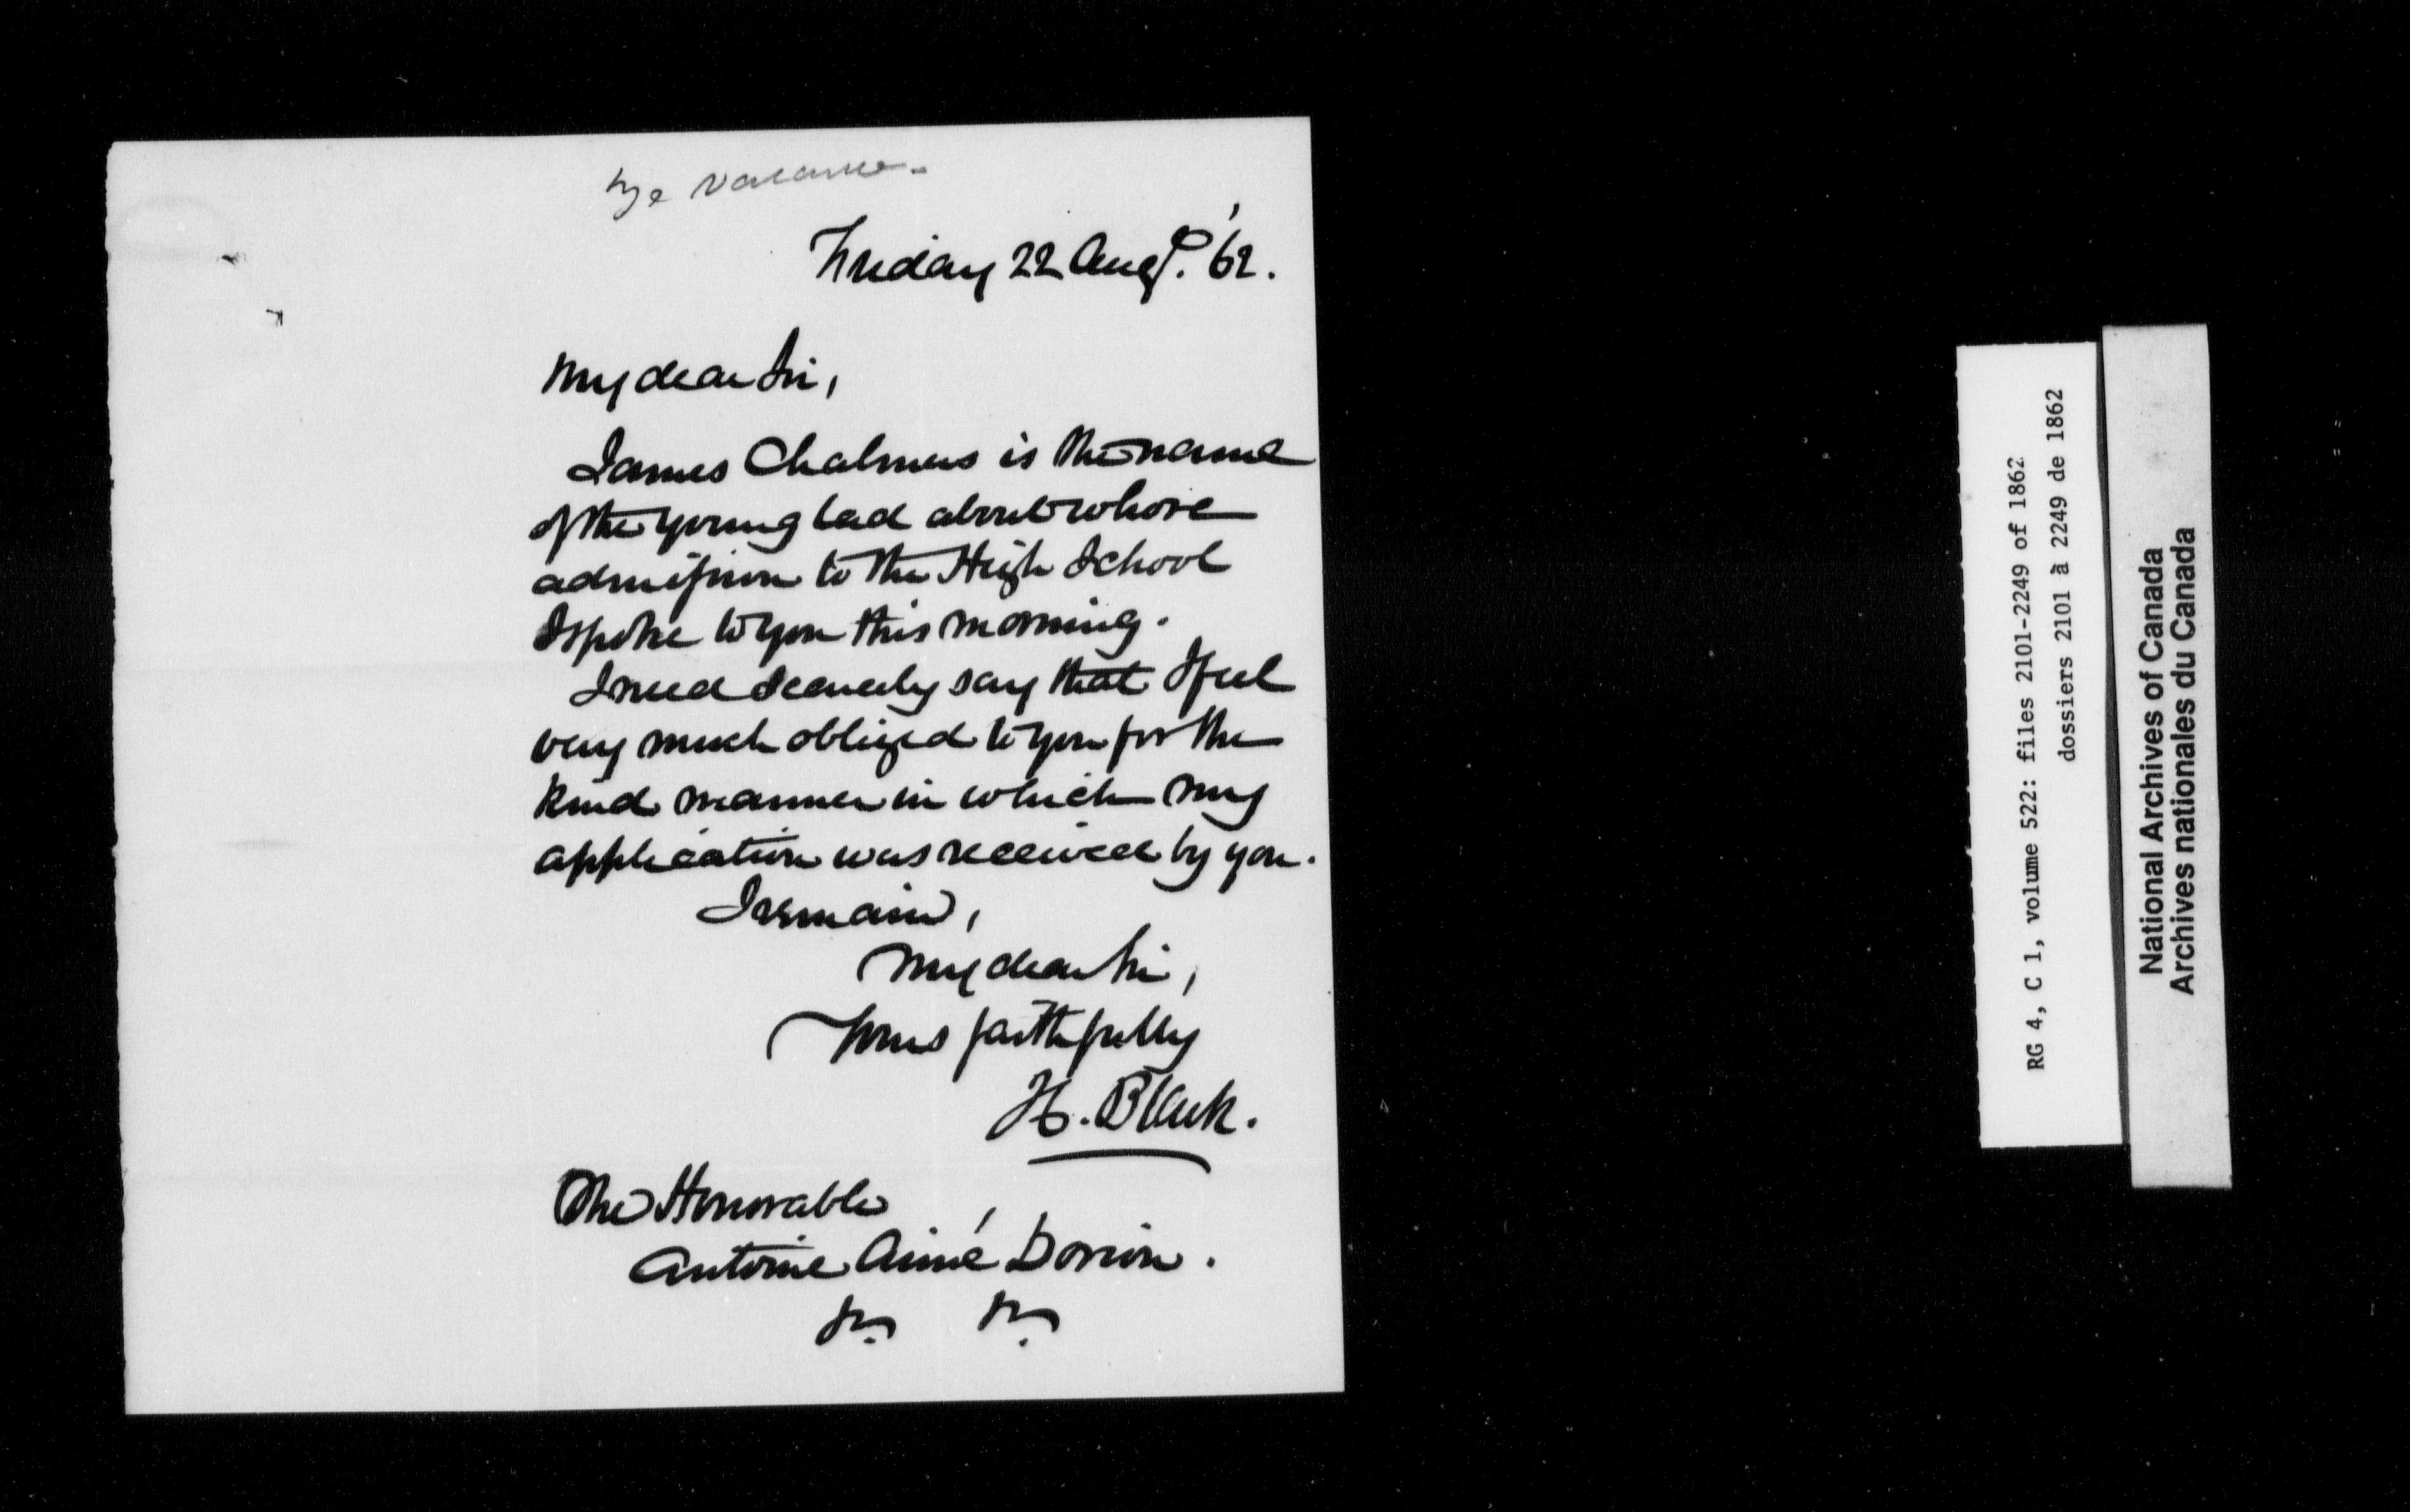 vacance.
Friday 22 Augt. '62.
My dear Sir,
James Chalmers is the name
of the young lad about whose
admission to the High School
I spoke to you this morning.
I need scarcely say that I feel
very much obliged to you for the
kind manner in which my
application was received by you.
I remain,
My dear Sir,
Yours faithfully
H. Black.
The Honorable
Antoine Aimé Dorion.
RG 4, C 1, volume 522: files 2101-2249 of 1862
dossiers 2101 à 2249 de 1862
National Archives of Canada
Archives nationales du Canada